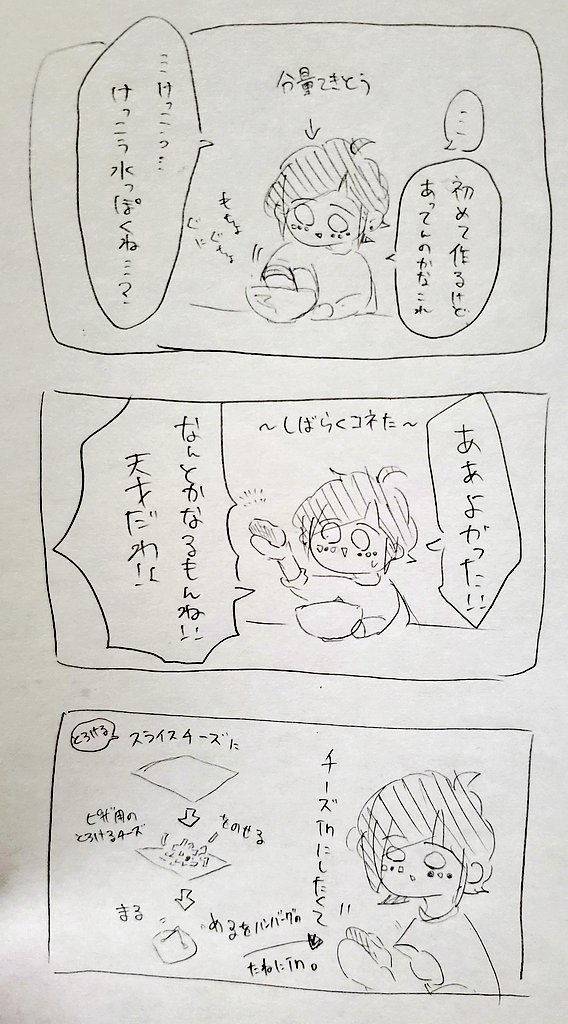 ……
初めて作るけど
あってんのかなこれ
分量てきとう
もちょ
ぐにぐちょ
……けっこう…
けっこう水っぽくね……？
ああよかった!!
～しばらくコネた～
なんとかなるもんね!!
天才だわ!!
チーズInにしたくて
とろける
スライスチーズに
ピザ用の
とろけるチーズ
をのせる
まる
めるをハンバーグの
たねにIn。